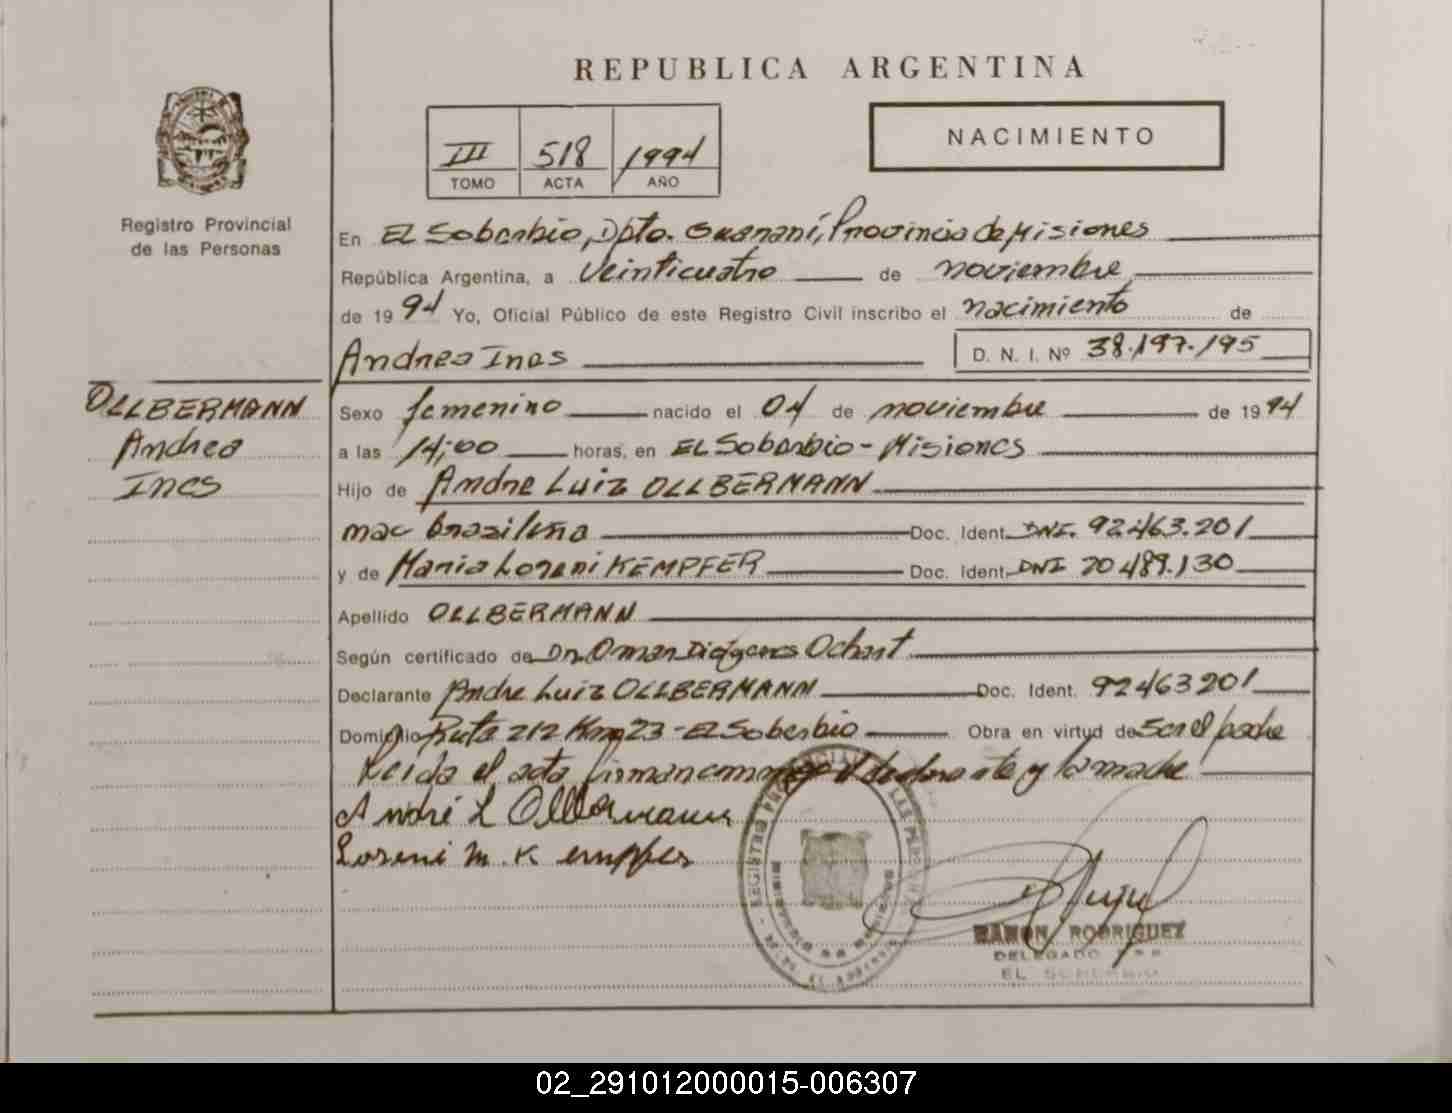 REPUBLICA ARGENTINA
III 518 1994
TOMO ACTA AÑO
NACIMIENTO
Registro Provincial
de las Personas
En El Soberbio, Dpto. Guaraní, Provincia de Misiones
República Argentina, a Veinticuatro de noviembre
de 19 94 Yo, Oficial Público de este Registro Civil inscribo el nacimiento de
Andrea Ines D. N. I. Nº 38.197.195
OLLBERMANN
Andrea
Ines
Sexo femenino nacido el 04 de noviembre de 19 94
a las 14;00 horas, en El Soberbio - Misiones
Hijo de Andre Luiz OLLBERMANN
nac brazileña Doc. Ident. DNI. 92.463.201
y de Maria Loreni KEMPFER Doc. Ident. DNI 20.489.130
Apellido OLLBERMANN
Según certificado de Dr. Omar Diógenes Ochart
Declarante Andre Luiz OLLBERMANN Doc. Ident. 92463201
Domicilio Ruta 212 Km 23 - El Soberbio Obra en virtud de ser el padre
Leida el acta firman conmigo el declarante y la madre
André L Ollbermann
Loreni M. Kempfer
RAMON RODRIGUEZ
DELEGADO
EL SOBERBIO
02_291012000015-006307